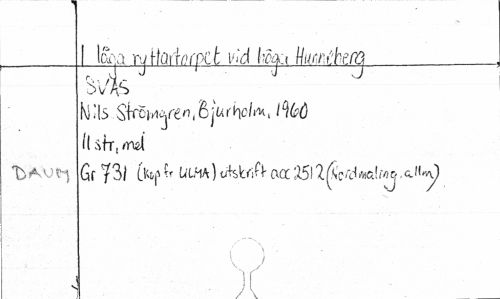 I låga ryttartorpet vid höga Hunneberg
SVAS
Nils Strömgren, Bjurholm, 1960
11 str, mel
DAUM Gr 731 (kop fr ULMA) utskrift acc 2512 (Nordmaling. allm)